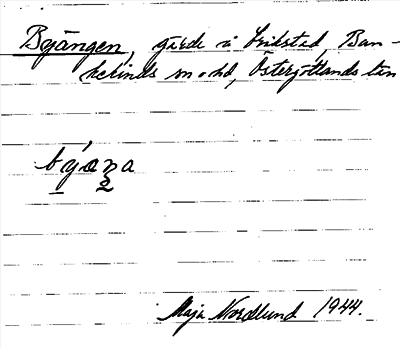 Byängen, gärde i Vrikstad, Ban-
kekinds sn o hd, Östergötlands län
býæŋa
Maja Nordlund 1944.